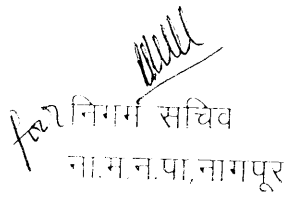 for निगम सचिव
ना.म.न.पा,नागपूर